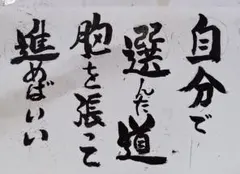 自分で
選んだ道
胸を張って
進めばいい